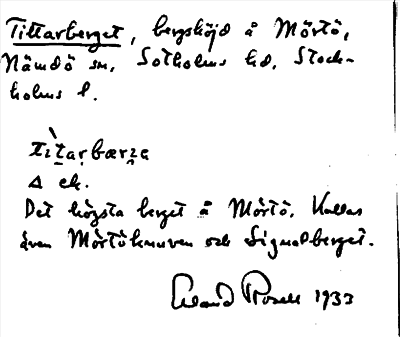 Tittarberget, bergshöjd å Mörtö,
Nämdö sn, Sotholms hd, Stock-
holms l.
tìtarbærʒe
Δ ek.
Det högsta berget å Mörtö. Kallas
även Mörtöknuven och Signalberget.
Erland Rosell 1933